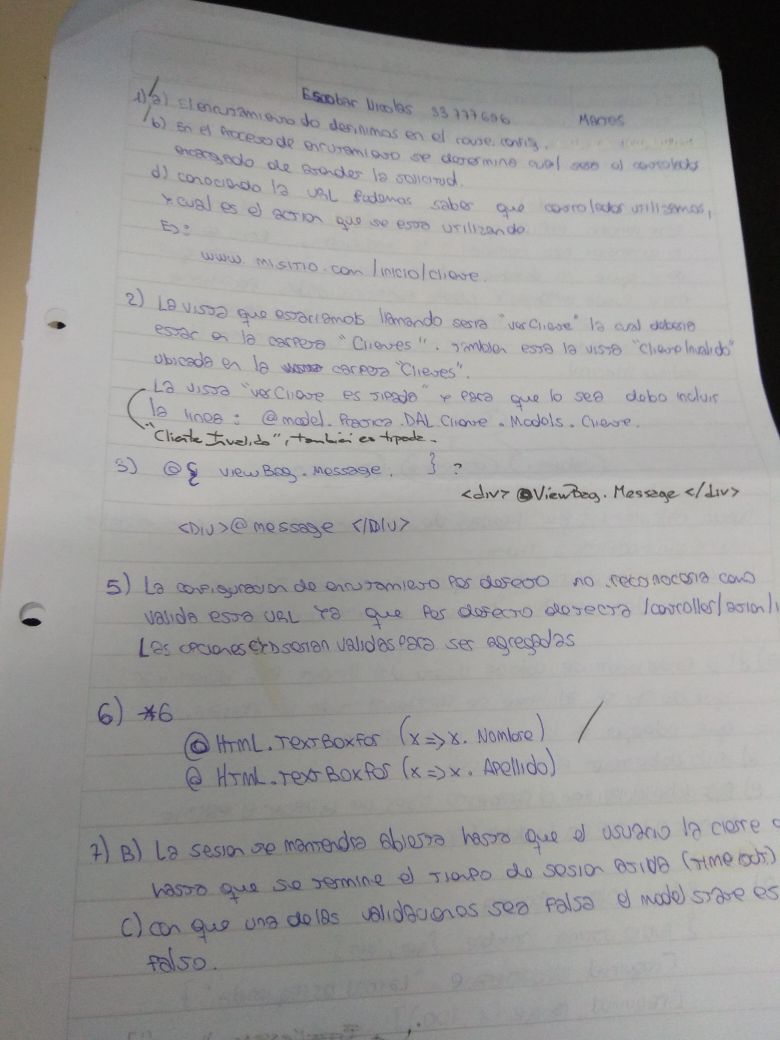 Escobar Nicolas 33777696 Martes
1) a) El enrutamiento do definimos en el route.config.
b) En el proceso de enrutamiento se determina cual sera el controlador
encargado de atender la solicitud.
d) conociendo la URL Podemos saber que controlador utilizamos,
y cual es el action que se esta utilizando
Ej:
www.misitio.com/inicio/cliente.
2) La vista que estariamos llamando seria "verCliente" la cual deberia
estar en la carpeta "Clientes". Tambien esta la vista "ClienteInvalido"
ubicada en la carpeta "Clientes".
La vista "verCliente es tipada" y para que lo sea debo incluir
la linea: @model.Practica.DAL.Cliente.Models.Cliente.
"Cliente Invalido", también es tipada.
3) @{ viewBag.Message. } ?
<div> @ViewBag.Message </div>
<Div>@message </Div>
5) La configuracion de enrutamiento Por defecto no reconoceria como
valida esta URL Ya que Por defecto detecta /controller/action/
Las opciones c y D serian validas Para ser agregadas
6) *6
@ Html.TextBoxfor (x=>x. Nombre)
@ Html.TextBoxfor (x=>x. Apellido)
7) B) La sesion se mantendra abierta hasta que el usuario la cierre o
hasta que se termine el tiempo de sesion activa (Timeout)
C) con que una de las validaciones sea falsa el model state es
falso.